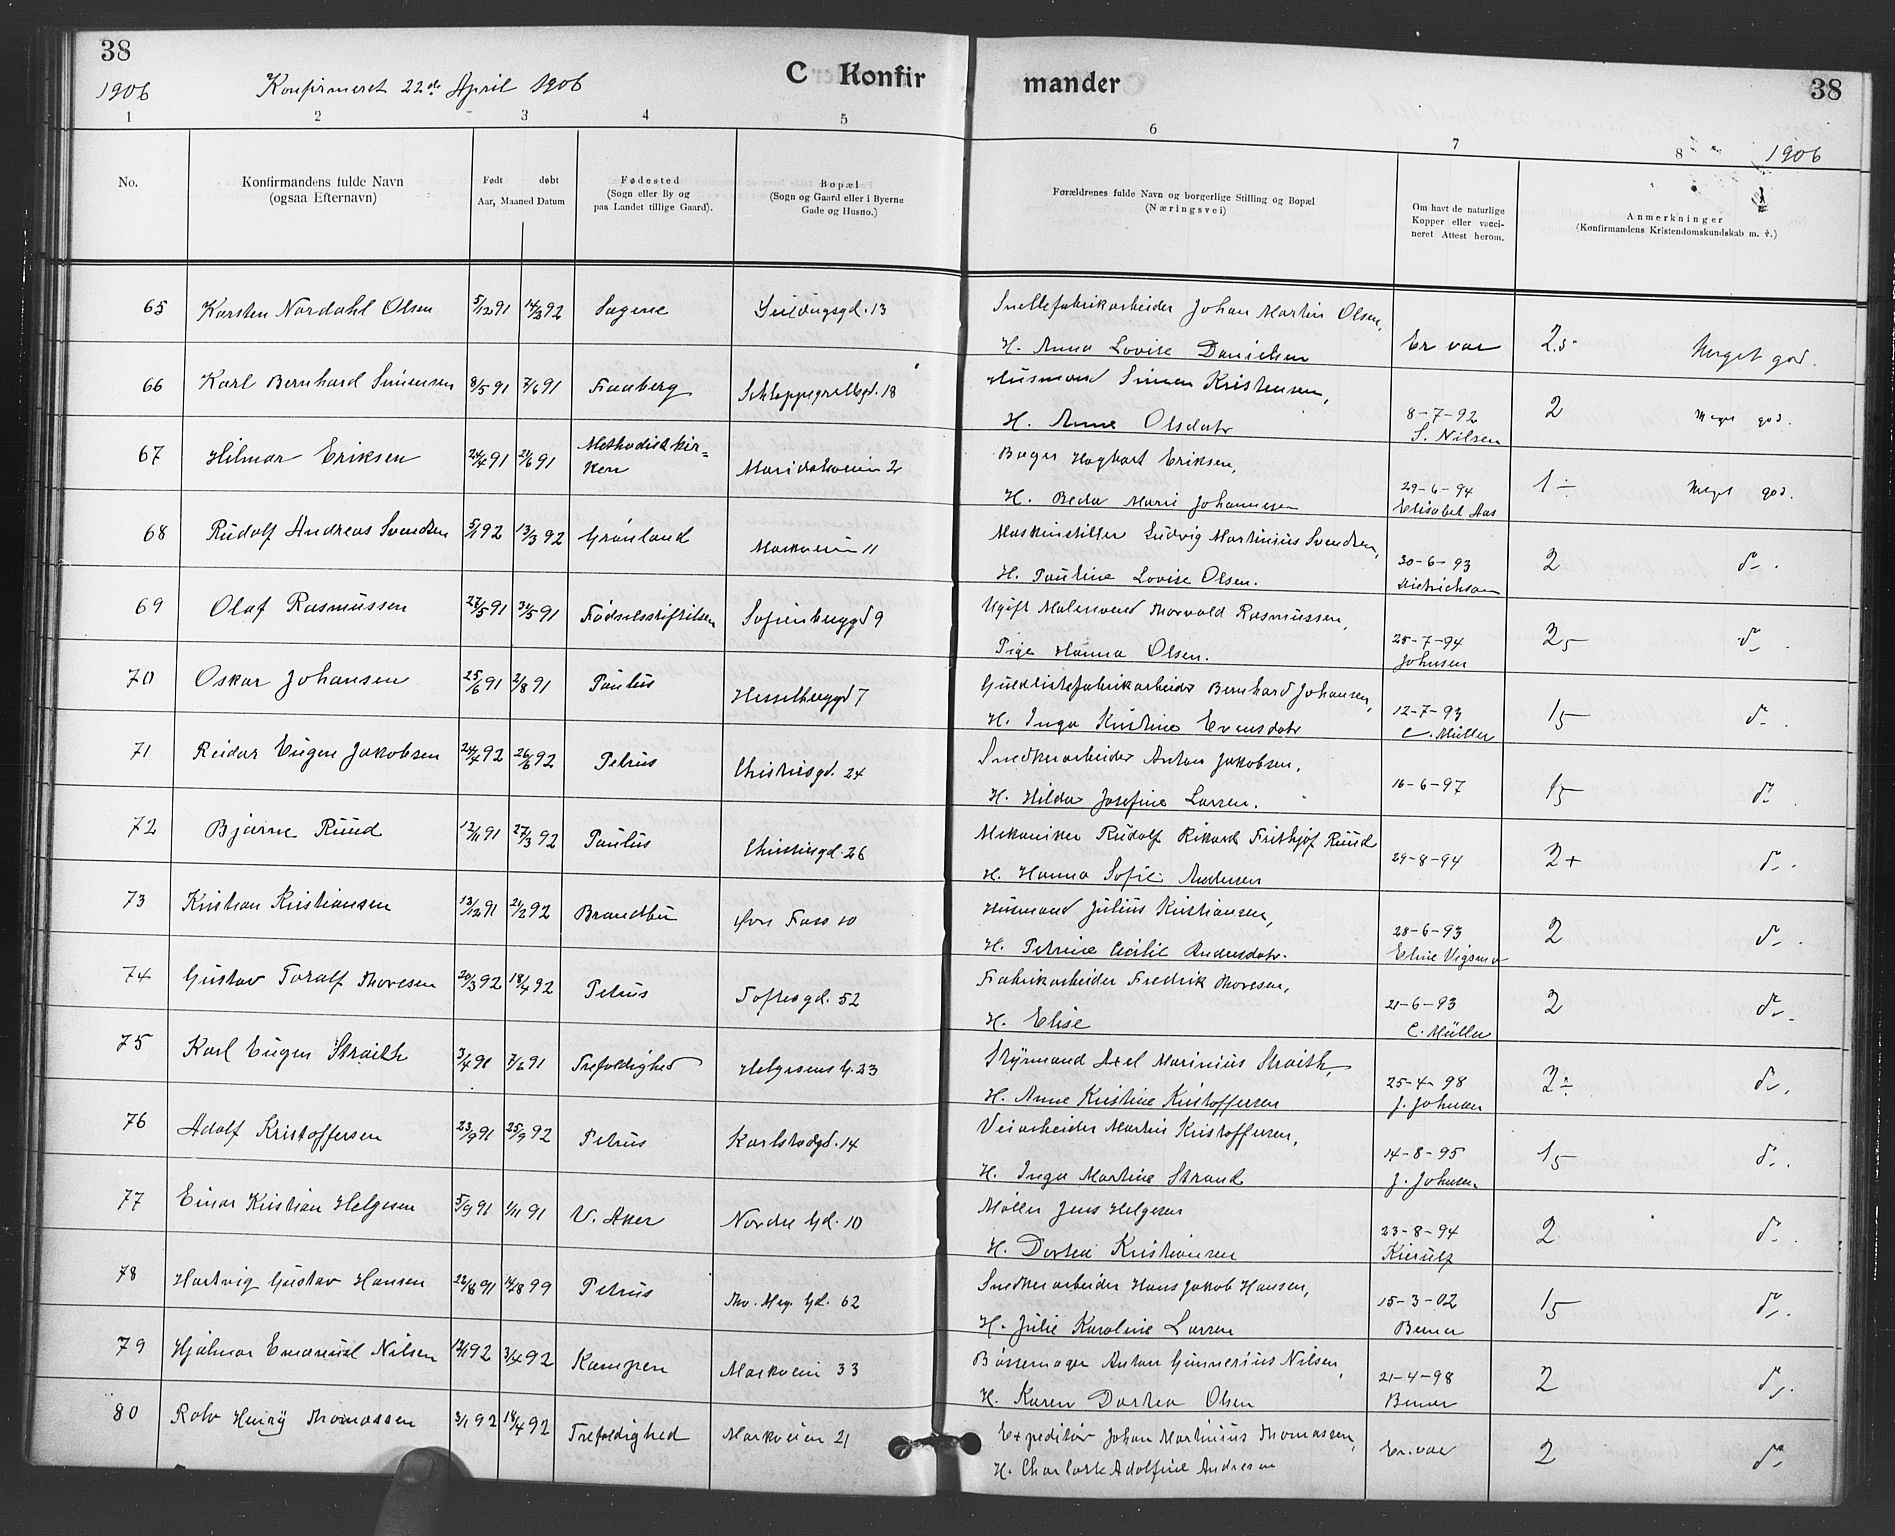 38
1906 Konfirmeret 22de April 1906
C Konfirmander
38
1906
1 2 3 4 5 6 7 8
No.
Konfirmandens fulde Navn
(ogsaa Efternavn)
Født døbt
Aar, Maaned Datum
Fødested
(Sogn eller By og
paa Landet tillige Gaard).
Bopæl
(Sogn og Gaard eller i Byerne
Gade og Husno.)
Forældrenes fulde Navn og borgerlige Stilling og Bopæl
(Næringsvei)
Om havt de naturlige
Kopper eller vacci-
neret Attest herom.
Anmerkninger
(Konfirmandens Kristendomskundskab m. v.)
65 Karsten Nordahl Olsen 5/12 91 14/2 92 Sagene 13 Johan Martin Olsen,
H. Anna Lovise Danielsen Er vac 2,5 Meget god.
66 Karl Bernhard Simensen 8/5 91 7/6 91 Faaberg Schleppegrellsgd. 18 Husmand Simen Kristensen,
H. Anne Olsdatr 8-7-92 2 Meget god.
S. Nilsen
67 Hilmar Eriksen 24/4 91 21/6 91 Methodistkir=
ken Maridalsveien 2 Bager Hagbart Eriksen,
H. Beda Marie Johannesen 29-6-94 1÷ Meget god.
Elisabet Aas
68 Rudolf Andreas Svendsen 5/1 92 13/3 92 Grønland Markveien 11 Maskinstiller Ludvig Martinius Svendsen,
H. Pauline Lovise Olsen. 30-6-93 2 do.
Didrichsen
69 Olaf Rasmussen 27/5 91 31/5 91 Fødselsstiftelsen Sofienberggd 9 Ugift Malersvend Thorvald Rasmussen,
Pige Hanna Olsen. 25-7-94 25 do.
Johnsen
70 Oskar Johansen 25/6 91 2/8 91 Paulus Hesselberggd 7 Guldlistefabrikarbeider Bernhard Johansen,
H. Inga Kristine Evensdatr 12-7-93 15 do.
C. Müller
71 Reidar Eugen Jakobsen 24/4 92 26/6 92 Petrus Christiesgd. 24 Snedkerarbeider Anton Jakobsen,
H. Hilda Josefine Larsen. 16-6-97 15 do.
72 Bjarne Ruud 12/11 91 27/3 92 Paulus Christiesgd. 26 Mekaniker Rudolf Rikard Frithjof Ruud
H. Hanna Sofie Andersen 29-8-94 2+ do.
73 Kristian Kristiansen 13/12 91 21/2 92 Brandbu Øvre Foss 10 Husmand Julius Kristiansen,
H. Petrine Cecilie Andersdatr. 28-6-93 2 do.
Eline
74 Gustav Toralf Thoresen 20/3 92 18/4 92 Petrus Toftesgd. 52 Fabrikarbeider Fredrik Thoresen,
H. Elise 21-6-93 2 do.
C. Müller
75 Karl Eugen Straith 3/4 91 7/6 91 Trefoldighed Helgesens G. 23 Styrmand Axel Marinius Straith,
H. Anne Kristine Kristoffersen 25-4-98 2÷ do.
J. Johnsen
76 Adolf Kristoffersen 23/9 91 25/9 92 Petrus Karlstadgd. 14 Veiarbeider Martin Kristoffersen,
H. Inga Martine Strand 14-8-95 15 do.
J. Johnsen
77 Einar Kristian Helgesen 5/9 91 1/11 91 V. Aker Nordre Gd. 10 Møller Jens Helgesen
H. Dortea Kristiansen 23-8-94 2 do.
Kierulf
78 Hartvig Gustav Hansen 22/6 91 14/8 99 Petrus Th. Mey. Gd. 62 Snedkerarbeider Hans Jakob Hansen,
H. Julie Karoline Larsen 15-3-02 15 do.
79 Hjalmar Emanuel Nilsen 12/1 92 3/4 92 Kampen Markveien 33 Bøssemager Anton Gunnerius Nilsen,
H. Karen Dortea Olsen 21-4-98 2 do.
80 Rolv Henry Thomassen 3/1 92 18/4 92 Trefoldighed Markveien 21 Expeditør Johan Martinius Thomassen,
H. Charlotte Adolfine Andresen Er. vac 2 do